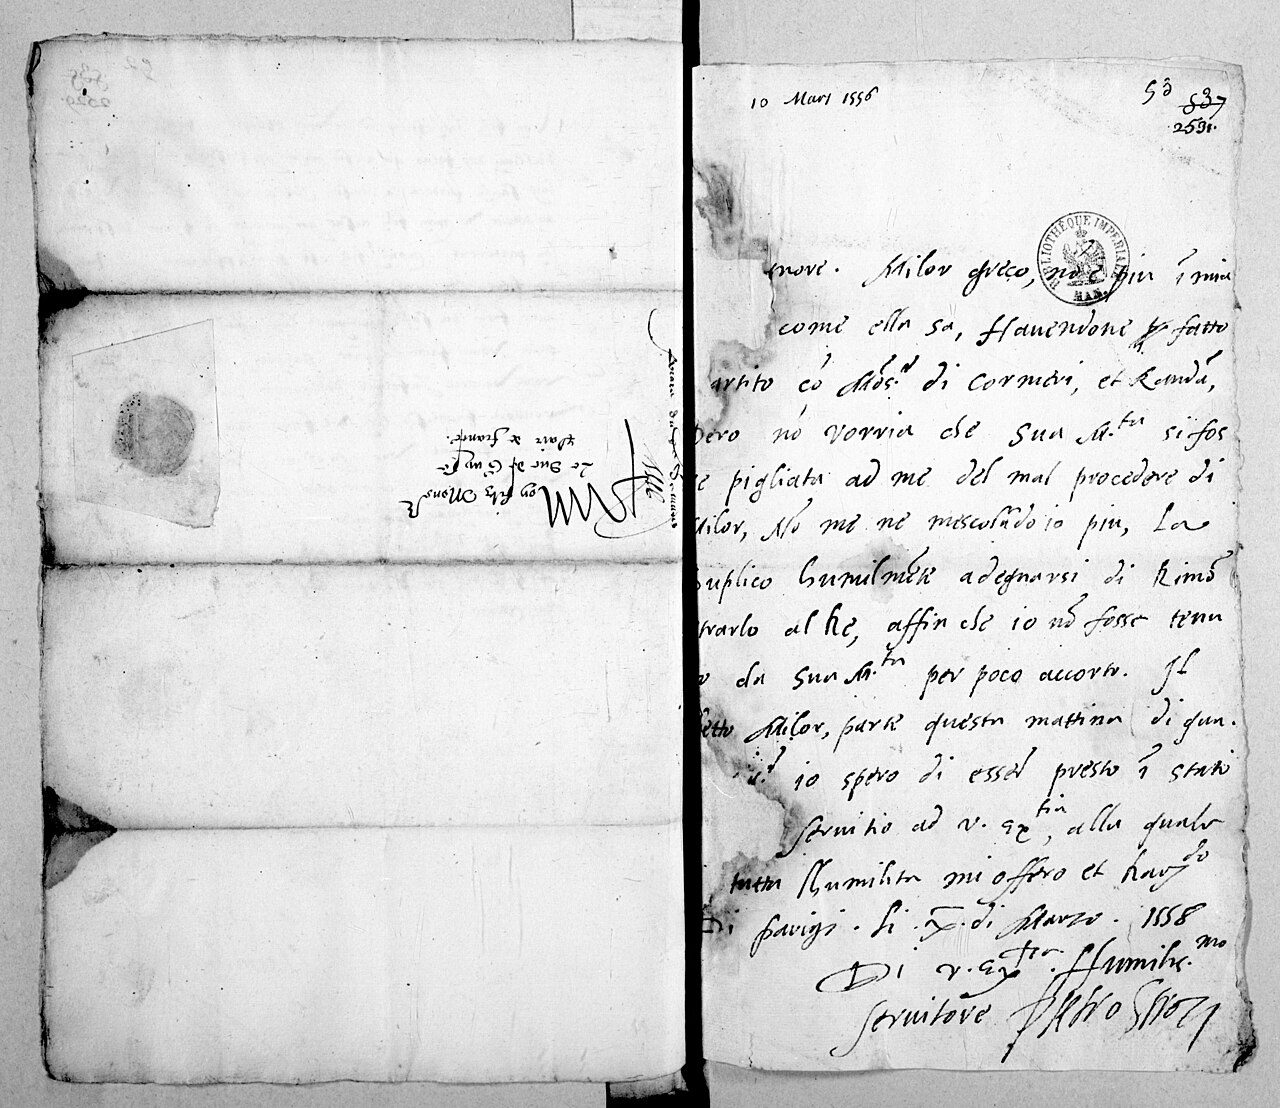 10 Mars 1556
53
537
2531.
BIBLIOTHÈQUE IMPERIALE
MAN.
nore. Milor Greco, nō è piu ī mia
come ella sa, Havendone fatto
artito cō Mōs.r di Cormeri, et Randā,
Pero nō vorria che Sua M.ta si fos
se pigliata ad me del mal procedere di
Milor, Nō me ne mescolādo io piu, La
suplico humilmēte a degnarsi di Rimō
strarlo al Re, affin che io nō fosse tenu
to da Sua M.ta per poco accorto. Il
detto Milor, parte questa mattina di qua.
io spero di esser presto ī stato
servitio ad v. Ex.tia, alla quale
tutta Humilita mi offero et Rac.do
Di Parigi. Li .X. di Marzo. 1558
Di v. Ex.tia Humilis.mo
servitore Pietro Strozi
Mons
Le Duc de Guyse
pair de france.